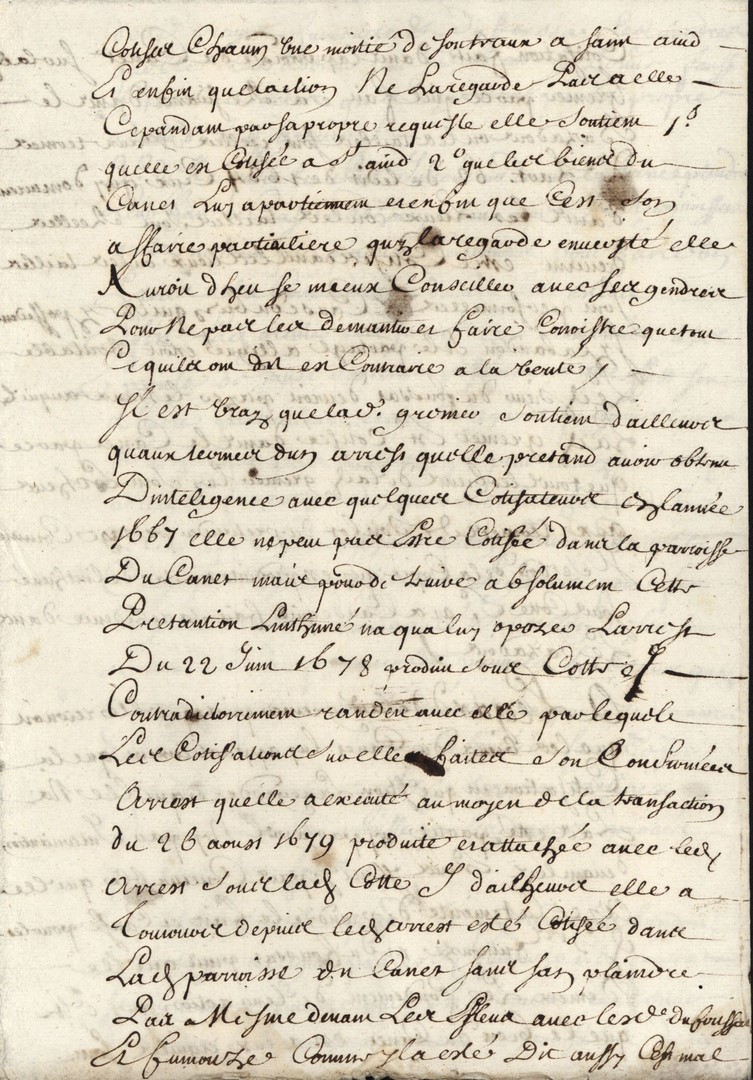 Cotiser Chaum une moitié de son traux a saint aind
Et enfin que laction Ne La regarde Pas a elle
Cepandant par sa propre requeste elle soutient 1°
quelle est Cotisée a St aind 2° que les biens du
Canet Luy apartienent et enfin que Cest son
affaire particuliere quy la regarde en verité elle
Auroit dheu se mieux Conseiller avec ses gendres
Pour Ne pas les demantir et faire Conoistre que tout
Ce quils ont dit est Contraire a la verité /
Il est vray que lad. grenier soutient dailleurs
quaux termes dun arrest quelle pretand avoir obtenu
Dinteligence avec quelques Cotisateurs en lannée
1667 elle ne peut pas Estre Cotisée dans la parroisse
Du Canet mais pour detruire absolument Cette
Pretantion Linthimé na qua luy opozer Larrest
Du 22 Juin 1678 produit sous Cotte
Contradictoirement randeu avec elle par lequel
Les Cotisations sur elle faites son Confirmées
Arrest quelle a executé au moyen de la transaction
du 26 aoust 1679 produite et attachée avec led
Arrest sous lad Cotte J dailheurs elle a
Tousiours depuis led arrest esté Cotisée dans
Lad parroisse du Canet sans san plaindre
Pas Mesme devant Les Esleus avec les de du
Et fumouze Comme yl a esté Dit aussy Cest mal